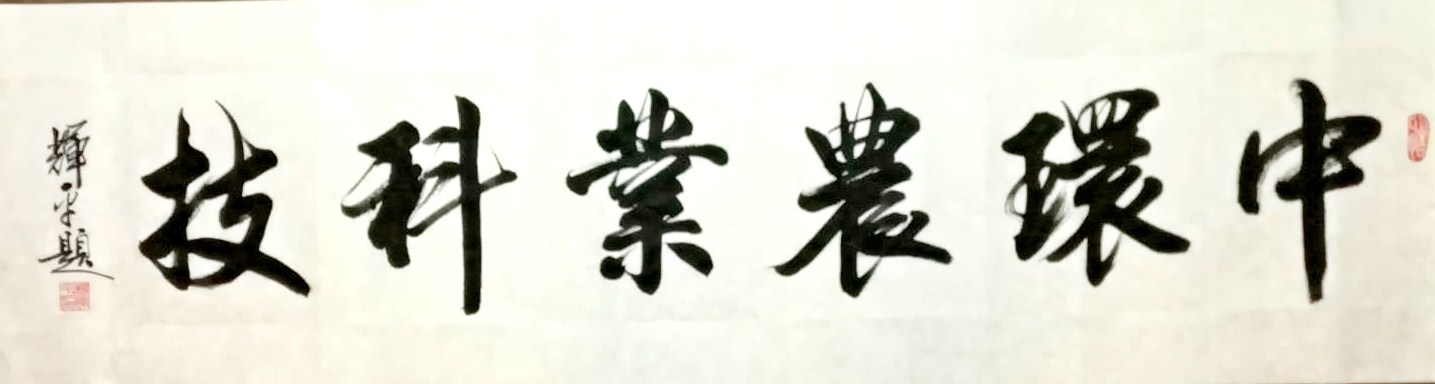 中環農業科技
輝平題